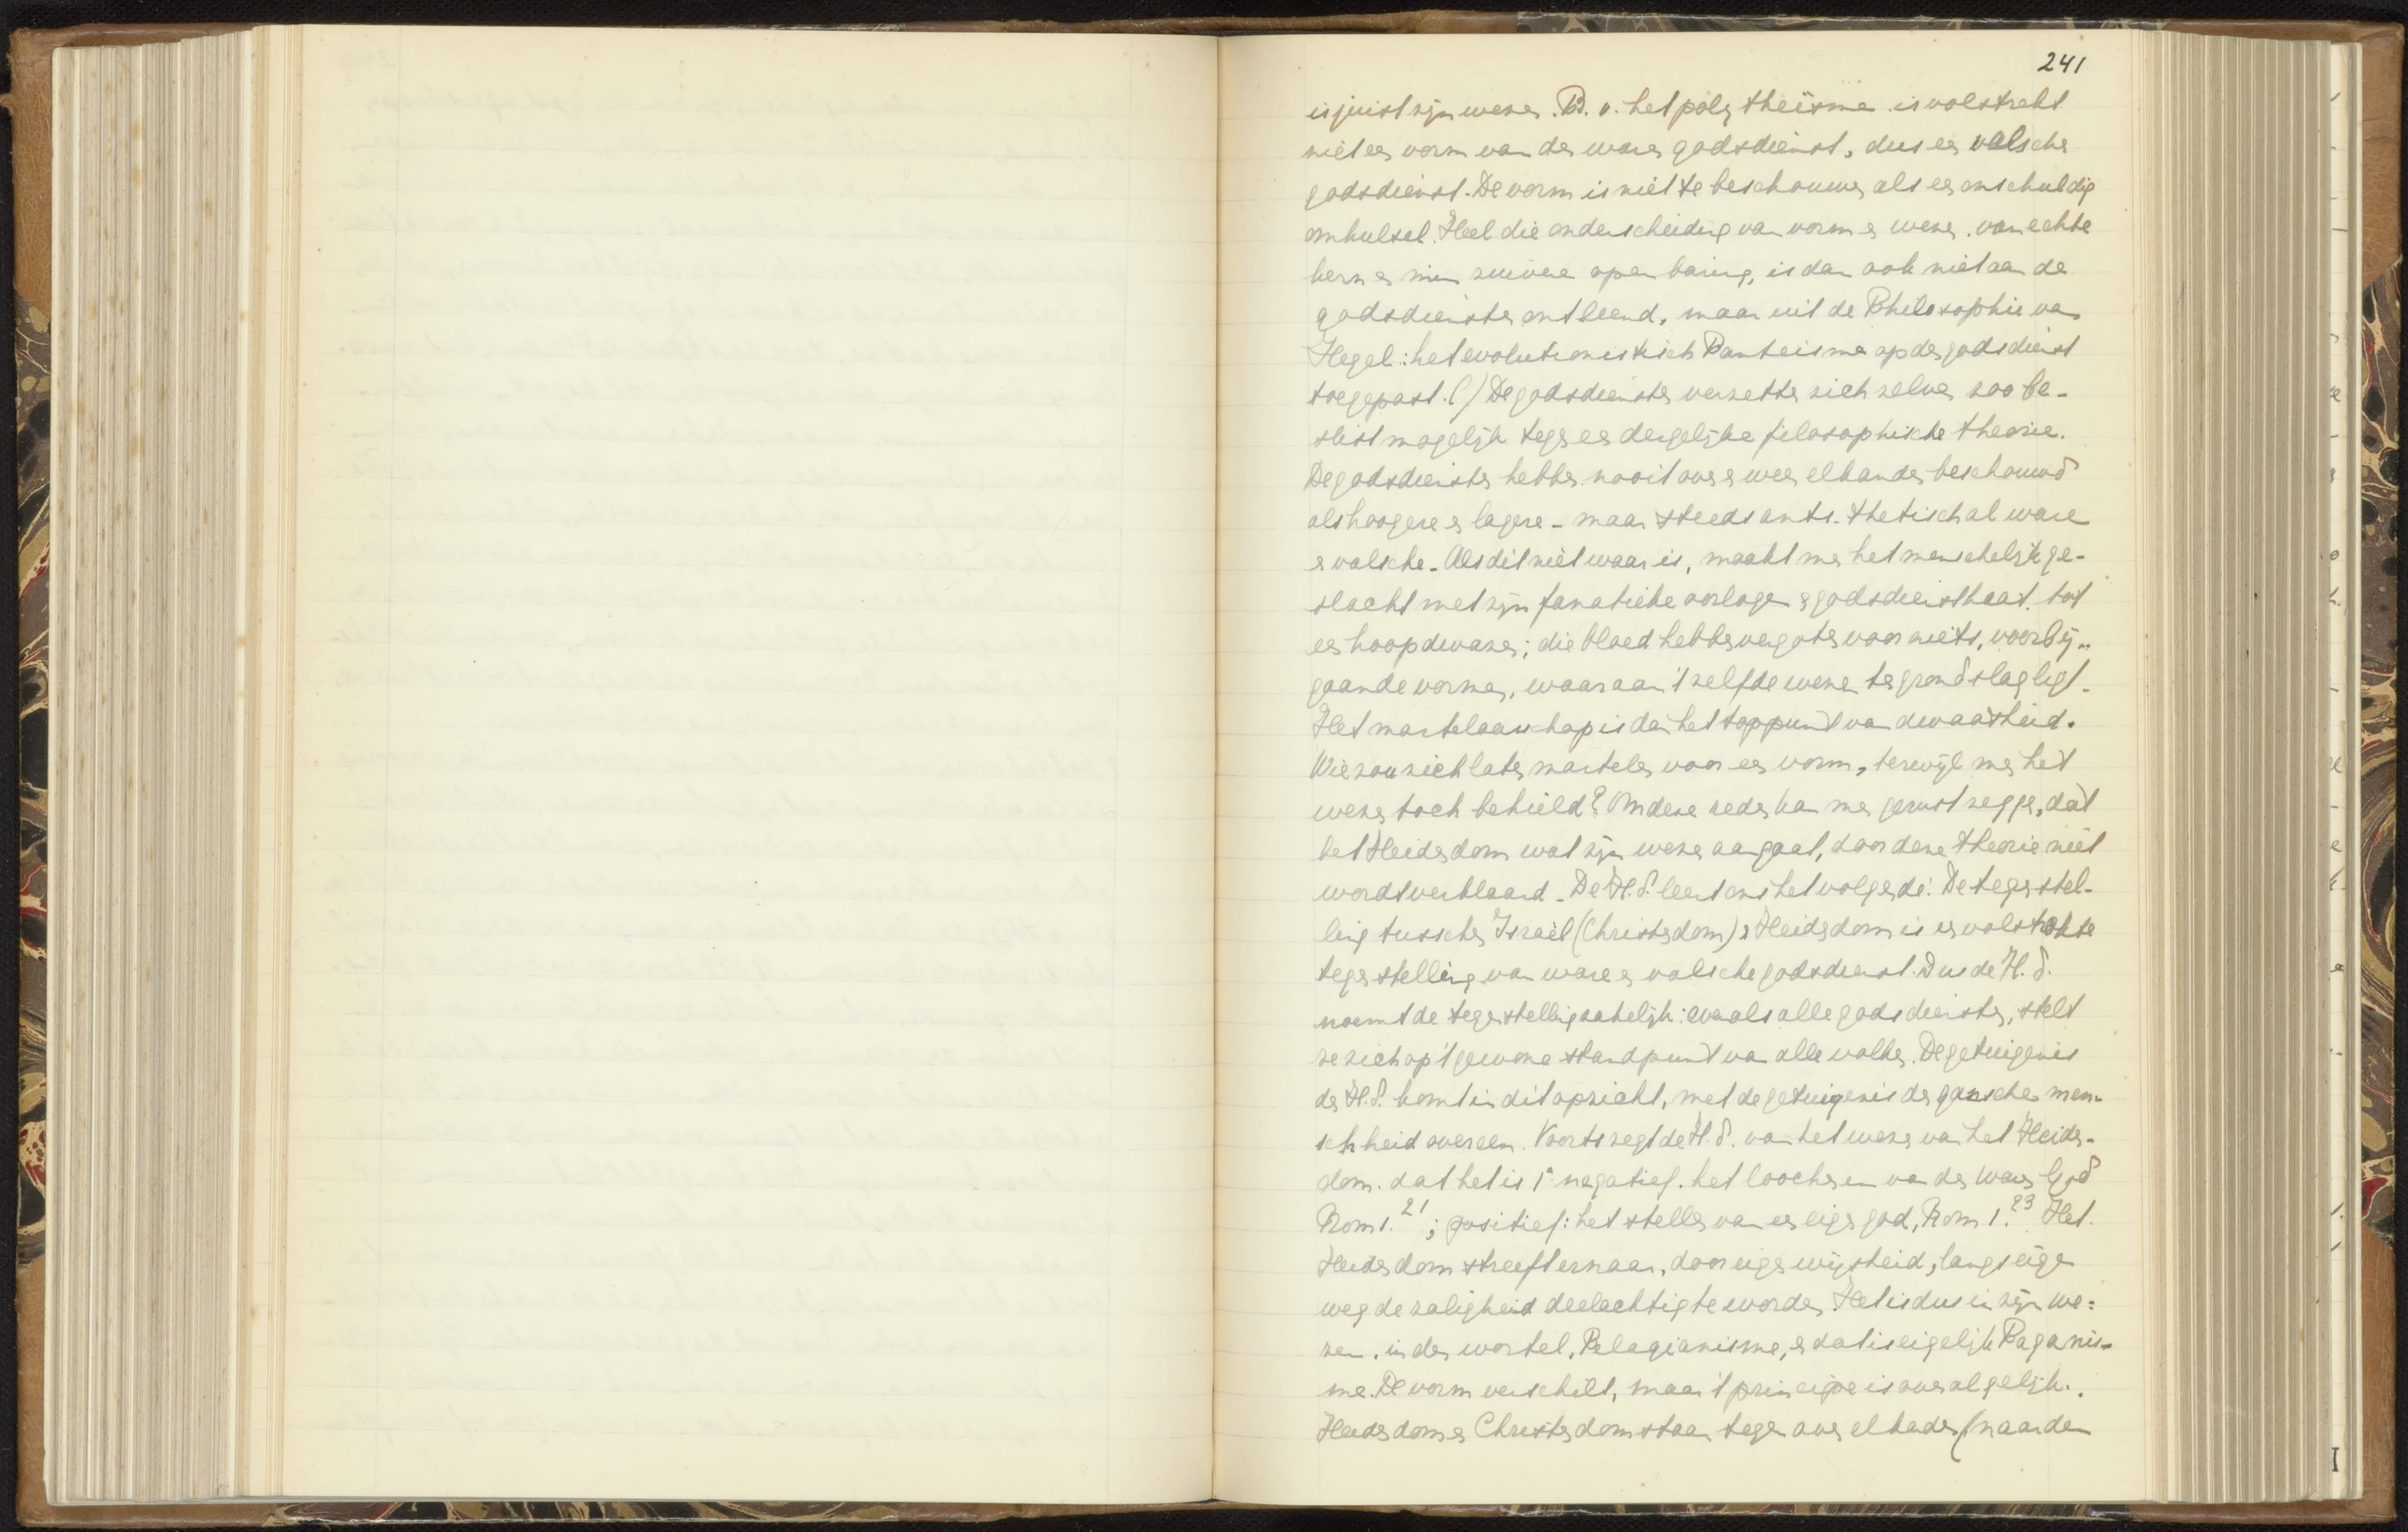 241
is juist zijn wezen. B. v. het polytheïsme is volstrekt
niet een vorm van den waren godsdienst, dus een valsche
godsdienst. De vorm is niet te beschouwen als een onschuldig
omhulsel. Heel die onderscheiding van vorm en wezen. van echte
kern en min zuivere openbaring, is dan ook niet aan de
godsdiensten ontleend, maar uit de Philosophie van
Hegel: het evolutionistisch Panteisme op den godsdienst
toegepast. (/) De godsdiensten verzetten zich zelven zoo be-
slist mogelijk tegen een dergelijke filosophische theorie.
De godsdiensten hebben nooit over en weer elkander beschouwd
als hoogere en lagere - maar steeds anti-thetisch al ware
en valsche. Als dit niet waar is, maakt men het menschelijk ge-
slacht met zijn fanatieke oorlogen en godsdiensthaat tot
een hoop dwazen; die bloed hebben vergoten voor niets, voorbij-
gaande vormen, waaraan 't zelfde wezen ten grondslag ligt.
Het martelaarschap is dan het toppunt van dwaasheid.
Wie zou zich laten martelen voor een vorm, terwijl men het
wezen toch behield? Om deze reden kan men gerust zeggen, dat
het Heidendom wat zijn wezen aangaat, door deze theorie niet
wordt verklaard. De H. S. leert ons het volgende: De tegenstel-
ling tusschen Israël (Christendom) en Heidendom is een volstrekte
tegenstelling van ware en valsche godsdienst. Dus de H. S.
noemt de tegenstelling zakelijk: evenals alle godsdiensten, stelt
ze zich op 't gewone standpunt van alle volken. De getuigenis
der H. S. komt in dit opzicht, met de getuigenis der gansche men-
schheid overeen. Voorts zegt de H. S. van het wezen van het Heiden-
dom. dat het is 1° negatief. het loochenen van den waren God
Rom 1.21; positief: het stellen van een eigen god, Rom 1.23 Het
Heidendom streeft ernaar, door eigen wijsheid, langs eigen
weg de zaligheid deelachtig te worden. Het is dus in zijn we-
zen. in den wortel, Pelagianisme, en dat is eigelijk Paganis-
me. De vorm verschilt, maar 't principe is overal gelijk.
Heidendom en Christendom staan tegen over elkander (naar den